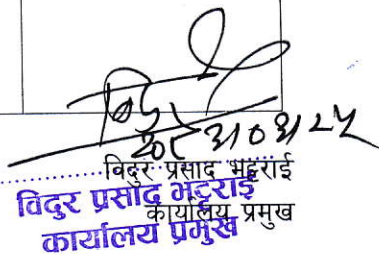 विदुर प्रसाद भट्टराई
कार्यालय प्रमुख
विदुर प्रसाद भट्टराई
कार्यालय प्रमुख